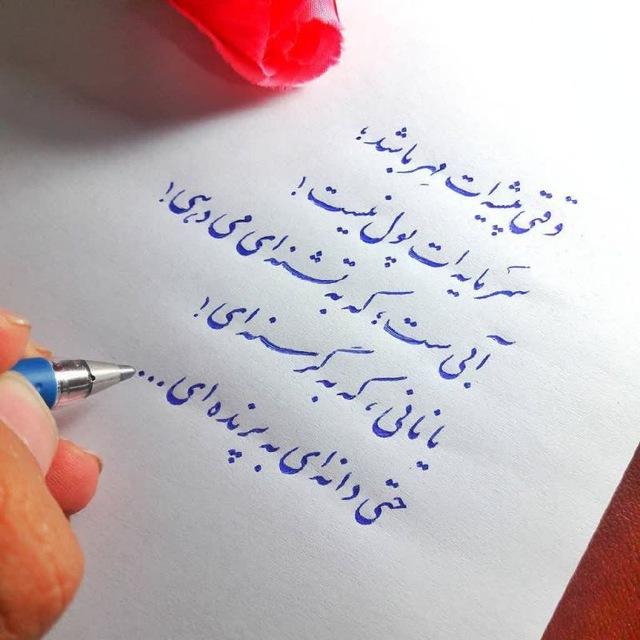 وقتی پیشه‌ات مهر باشد،
سَرمایه‌ات پول نیست!
آبی‌ست، که به تشنه‌ای می‌دهی!
یا نانی، که به گرسنه‌ای!
حتی دانه‌ای به پرنده‌ای...